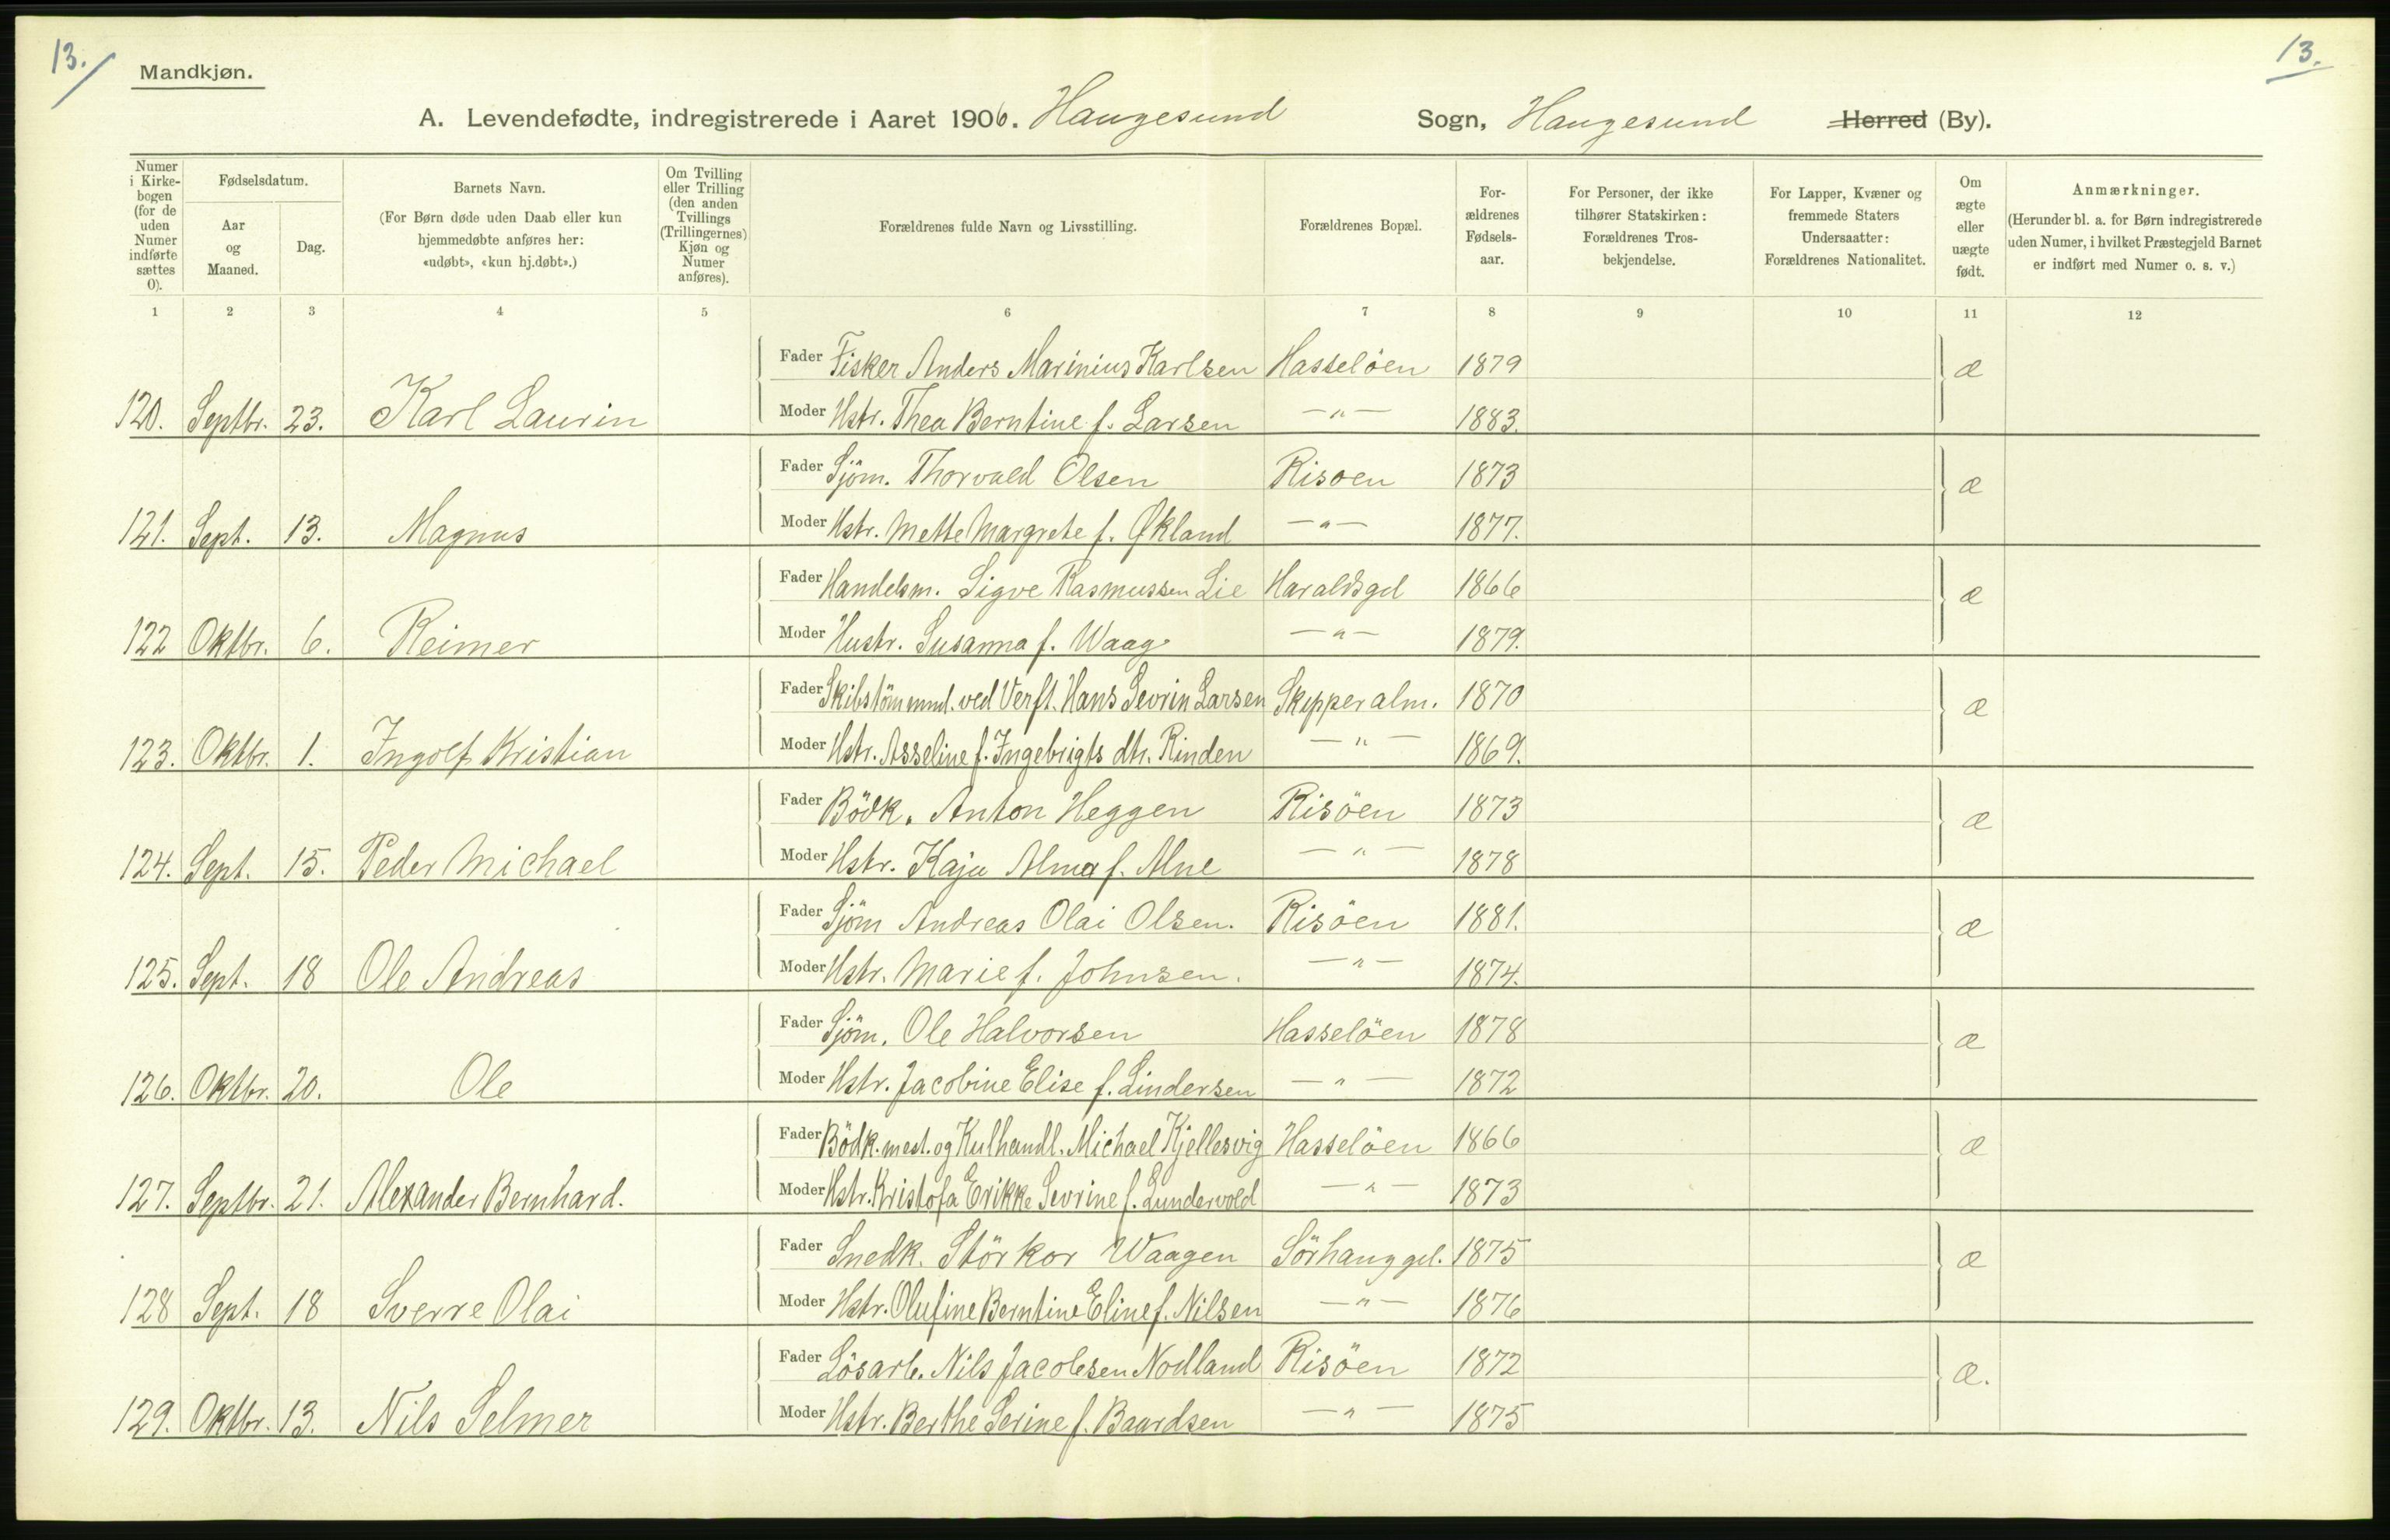 13.
13.
Mandkjøn.
A. Levendefødte, indregistrerede i Aaret 1906. Haugesund Sogn, Haugesund Herred (By).
Numer i Kirkebogen (for de uden Numer indførte sættes 0).
Fødselsdatum.
Aar og Maaned.
Dag.
Barnets Navn.
(For Børn døde uden Daab eller kun hjemmedøbte anføres her: «udøbt», «kun hj.døbt».)
Om Tvilling eller Trilling (den anden Tvillings (Trillingernes) Kjøn og Numer anføres).
Forældrenes fulde Navn og Livsstilling.
Forældrenes Bopæl.
For- ældrenes Fødsels- aar.
For Personer, der ikke tilhører Statskirken: Forældrenes Tros- bekjendelse.
For Lapper, Kvæner og fremmede Staters Undersaatter: Forældrenes Nationalitet.
Om ægte eller uægte født.
Anmærkninger.
(Herunder bl. a. for Børn indregistrerede uden Numer, i hvilket Præstegjeld Barnet er indført med Numer o. s. v.)
1 2 3 4 5 6 7 8 9 10 11 12
Fader Fisker Anders Marinius Karlsen Hasselöen 1879 æ
120. Septbr. 23. Karl Laurin Moder Hstr. Thea Berntine f. Larsen —"— 1883.
Fader Sjöm. Thorvald Olsen Risoen 1873 æ
121. Sept. 13. Magnus Moder Hstr. Mette Margrete f. Økland —"— 1877.
Fader Handelsm. Sigve Rasmussen Lie Haraldsgd 1866 æ
122 Oktbr. 6. Reimer Moder Hustr. Susanna f. Waage —"— 1879.
Fader Skibstömmmd. ved Verft. Hans Sevrin Larsen Skipperalm. 1870 æ
123. Oktbr. 1. Ingolf Kristian Moder Hstr. Asseline f. Ingebrigts dtr. Rinden —"— 1869.
Fader Bödk. Anton Heggen Risöen 1873 æ
124. Sept. 15. Peder Michael Moder Hstr. Kaja Alma f. Alne —"— 1878
Fader Sjöm Andreas Olai Olsen. Risöen 1881. æ
125. Sept. 18 Ole Andreas Moder Hstr. Marie f. Johnsen. —"— 1874.
Fader Sjöm. Ole Halvorsen Hasselöen 1878 æ
126. Oktbr. 20. Ole Moder Hstr. Jacobine Elise f. Lindersen —"— 1872
Fader Bödk. mest. og Kulhandl. Michael Kjellesvig Hasselöen 1866 æ
127. Septbr. 21. Alexander Bernhard. Moder Hstr. Kristofa Erikke Sevrine f. Lundervold —"— 1873
Fader Snedk. Störkor Waagen Sörhauggd. 1875 æ
128 Sept. 18 Sverre Olai Moder Hstr. Olufine Berntine Eline f. Nilsen —"— 1876
Fader Lösarb. Nils Jacobsen Nodland Risöen 1872 æ.
129. Oktbr. 13. Nils Selmer Moder Hstr. Berthe Serine f. Baardsen —"— 1875